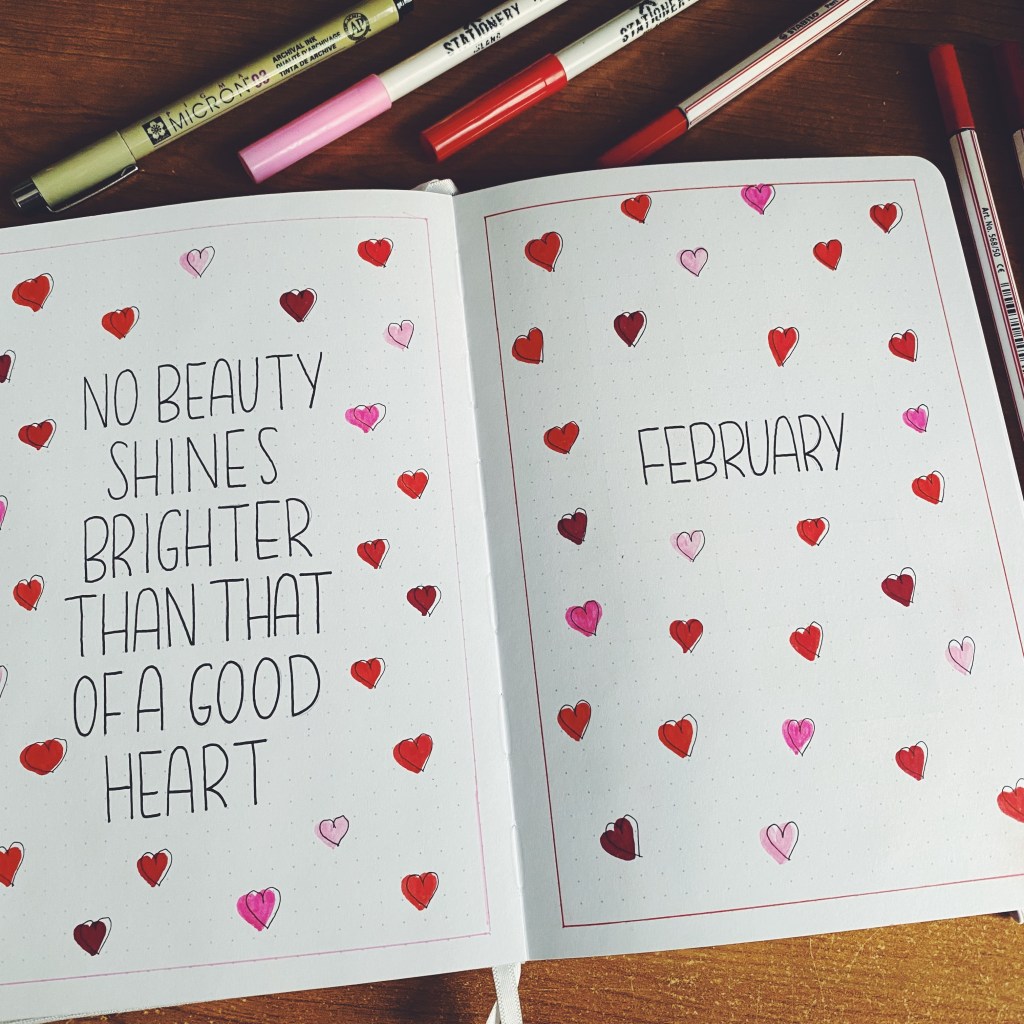 ARCHIVAL INK
QUALITÉ D'ARCHIVE
TINTA DE ARCHIVE
MICRON 03
STATIONERY
ISLAND
STATIONERY
Art. No. 568/50 CE
NO BEAUTY
SHINES
BRIGHTER
THAN THAT
OF A GOOD
HEART
FEBRUARY